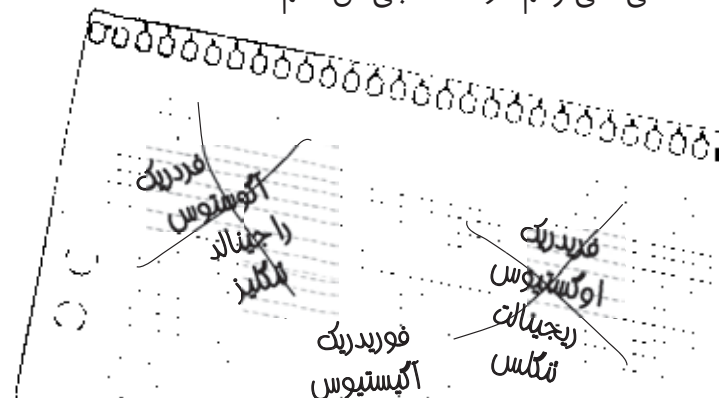 فردریک
آگوستوس
راجینالد
تنگلیز
فریدریک
اوگستیوس
ریجینالت
تنگلس
فوریدریک
آگیستیوس